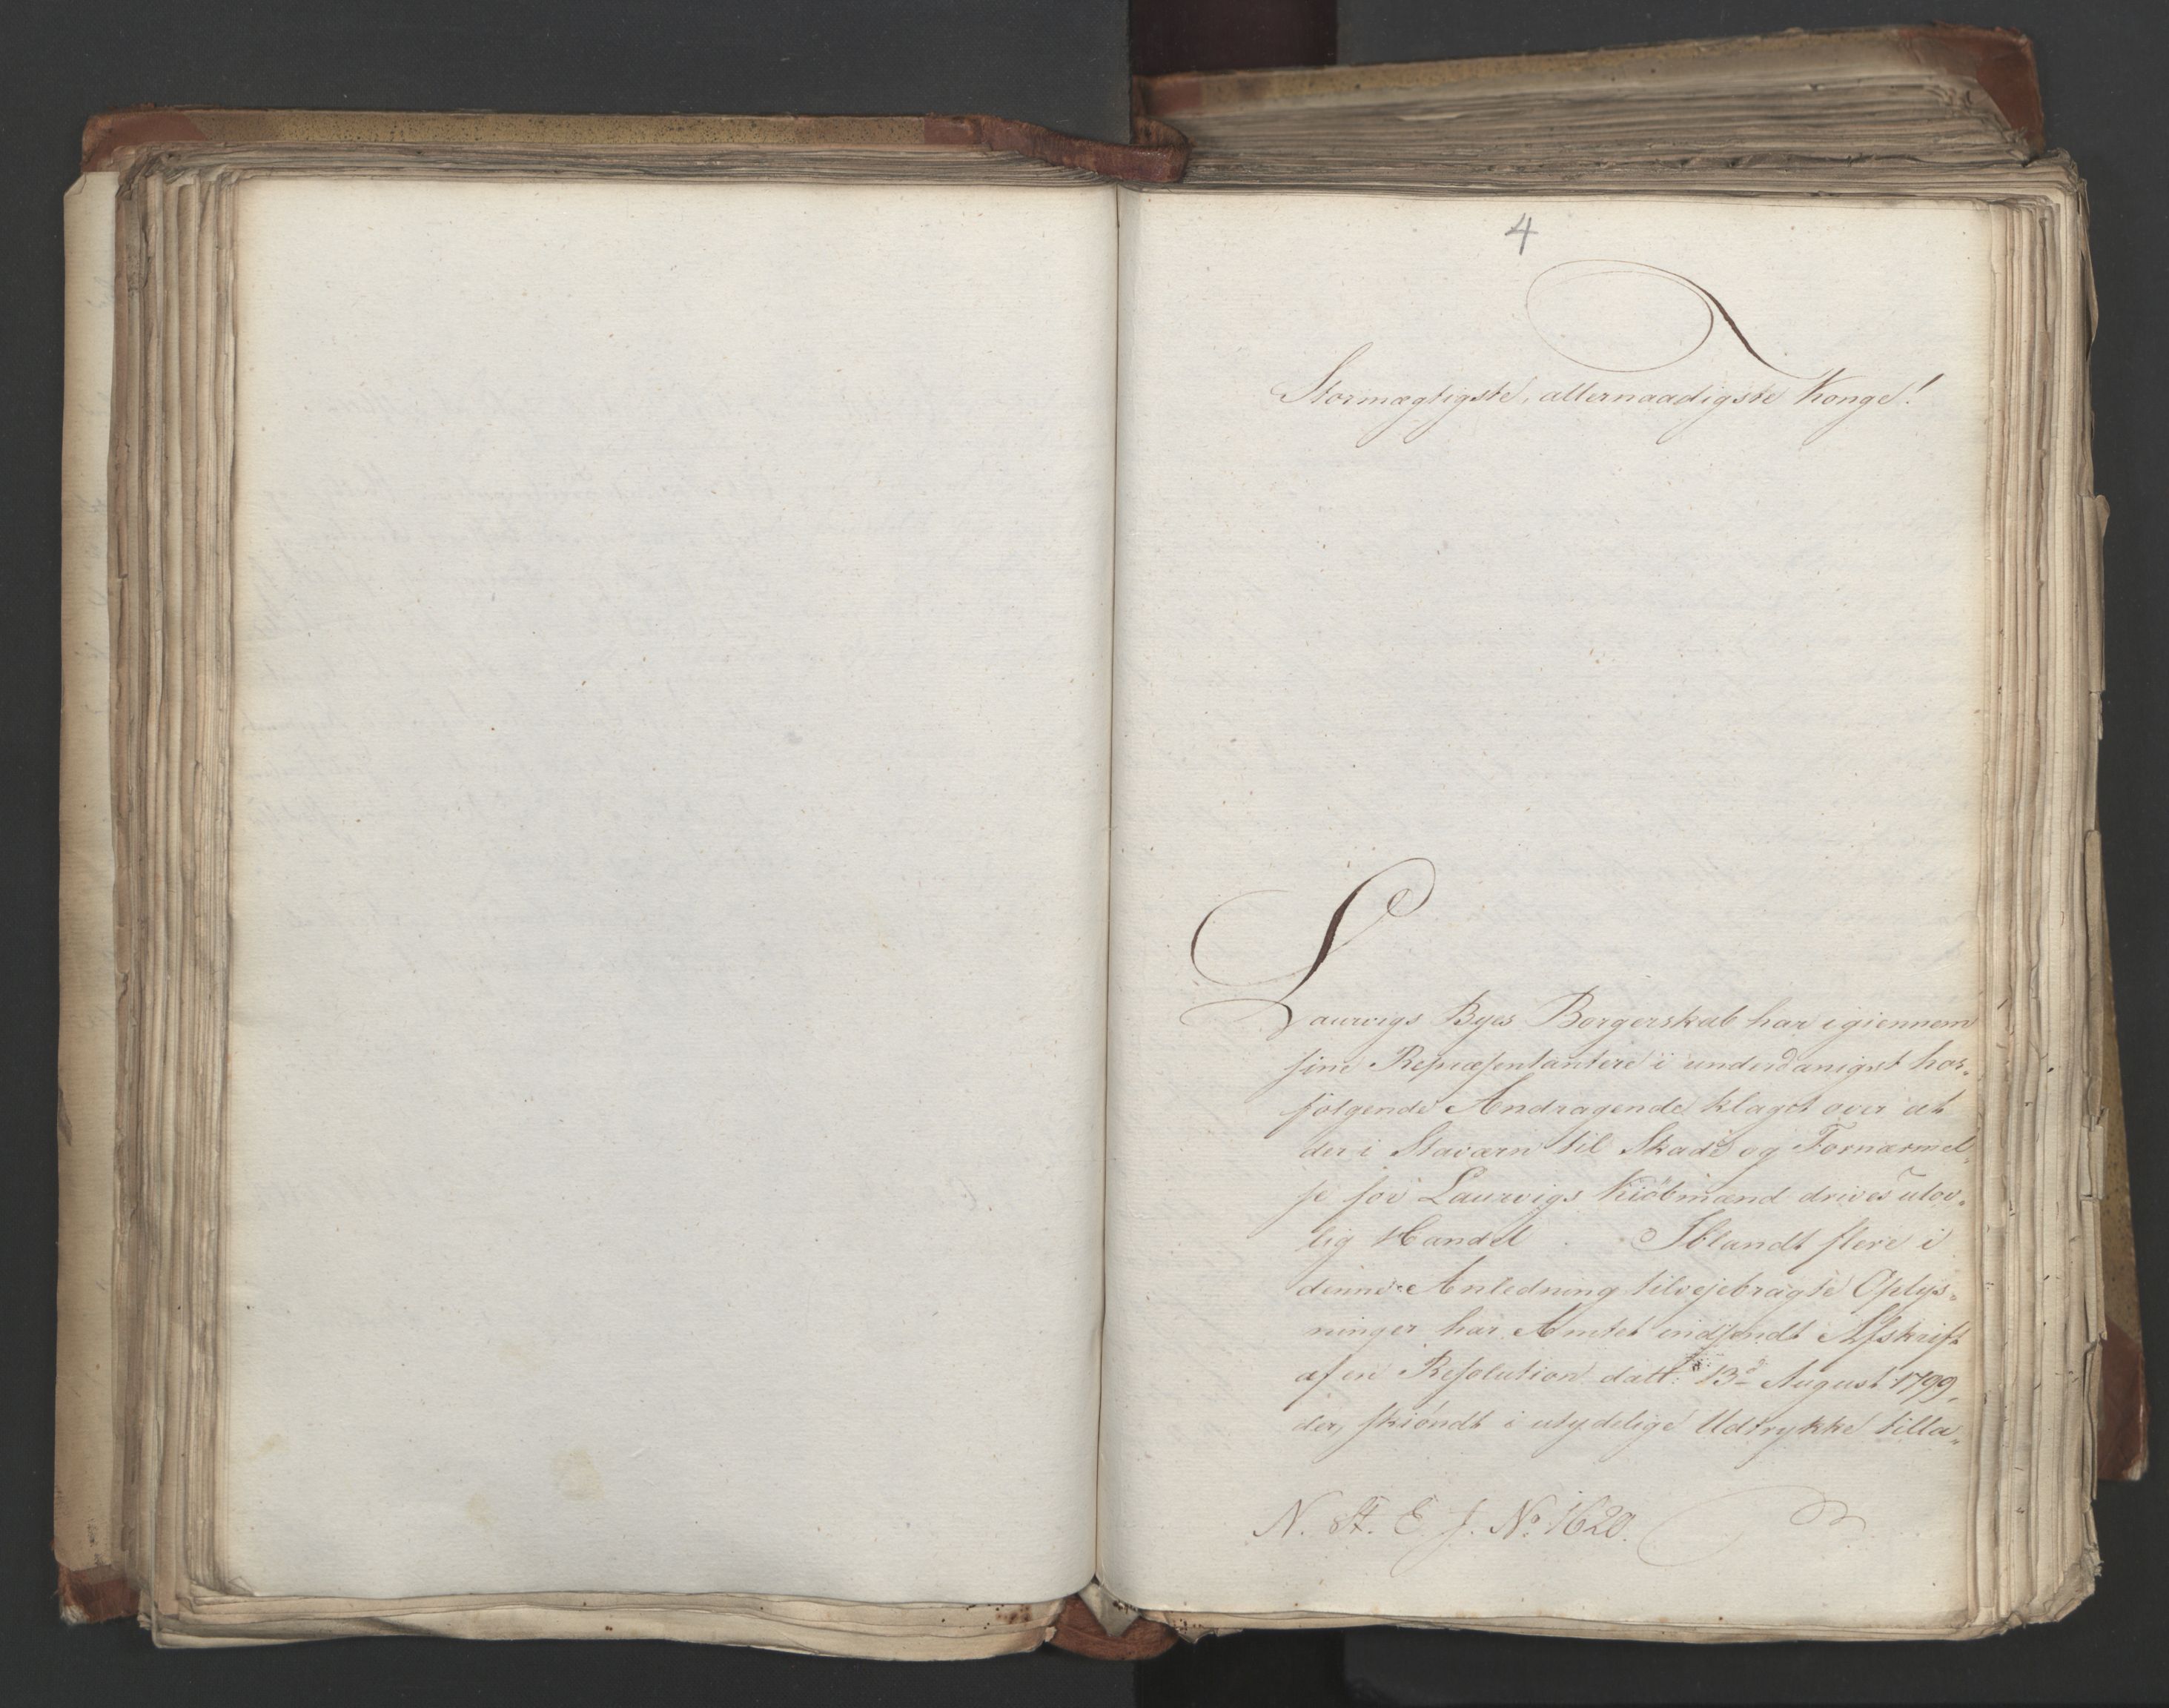 4
Stormægtigste, allernaadigste Konge!
Laurvigs Byes Borgerskab har igiennem
sine Repræsentantere i underdanigst hos-
følgende Andragende klaget over at
der i Staværn til Skade og Fornærmel-
se for Laurvigs Kiöbmænd drives ulov-
lig Handel. Iblandt flere i
denne Anledning tilvejebragte Oplys-
ninger har Amtet indsendt Afskrift
af en Resolution datt: 13d August 1799,
der, skiöndt i utydelige Udtrykke tilla-
N. A. E. J. No 1620.